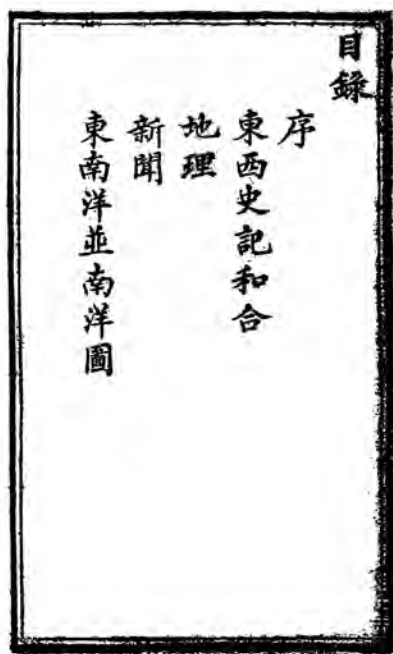 目錄
序
東西史記和合
地理
新聞
東南洋並南洋圖